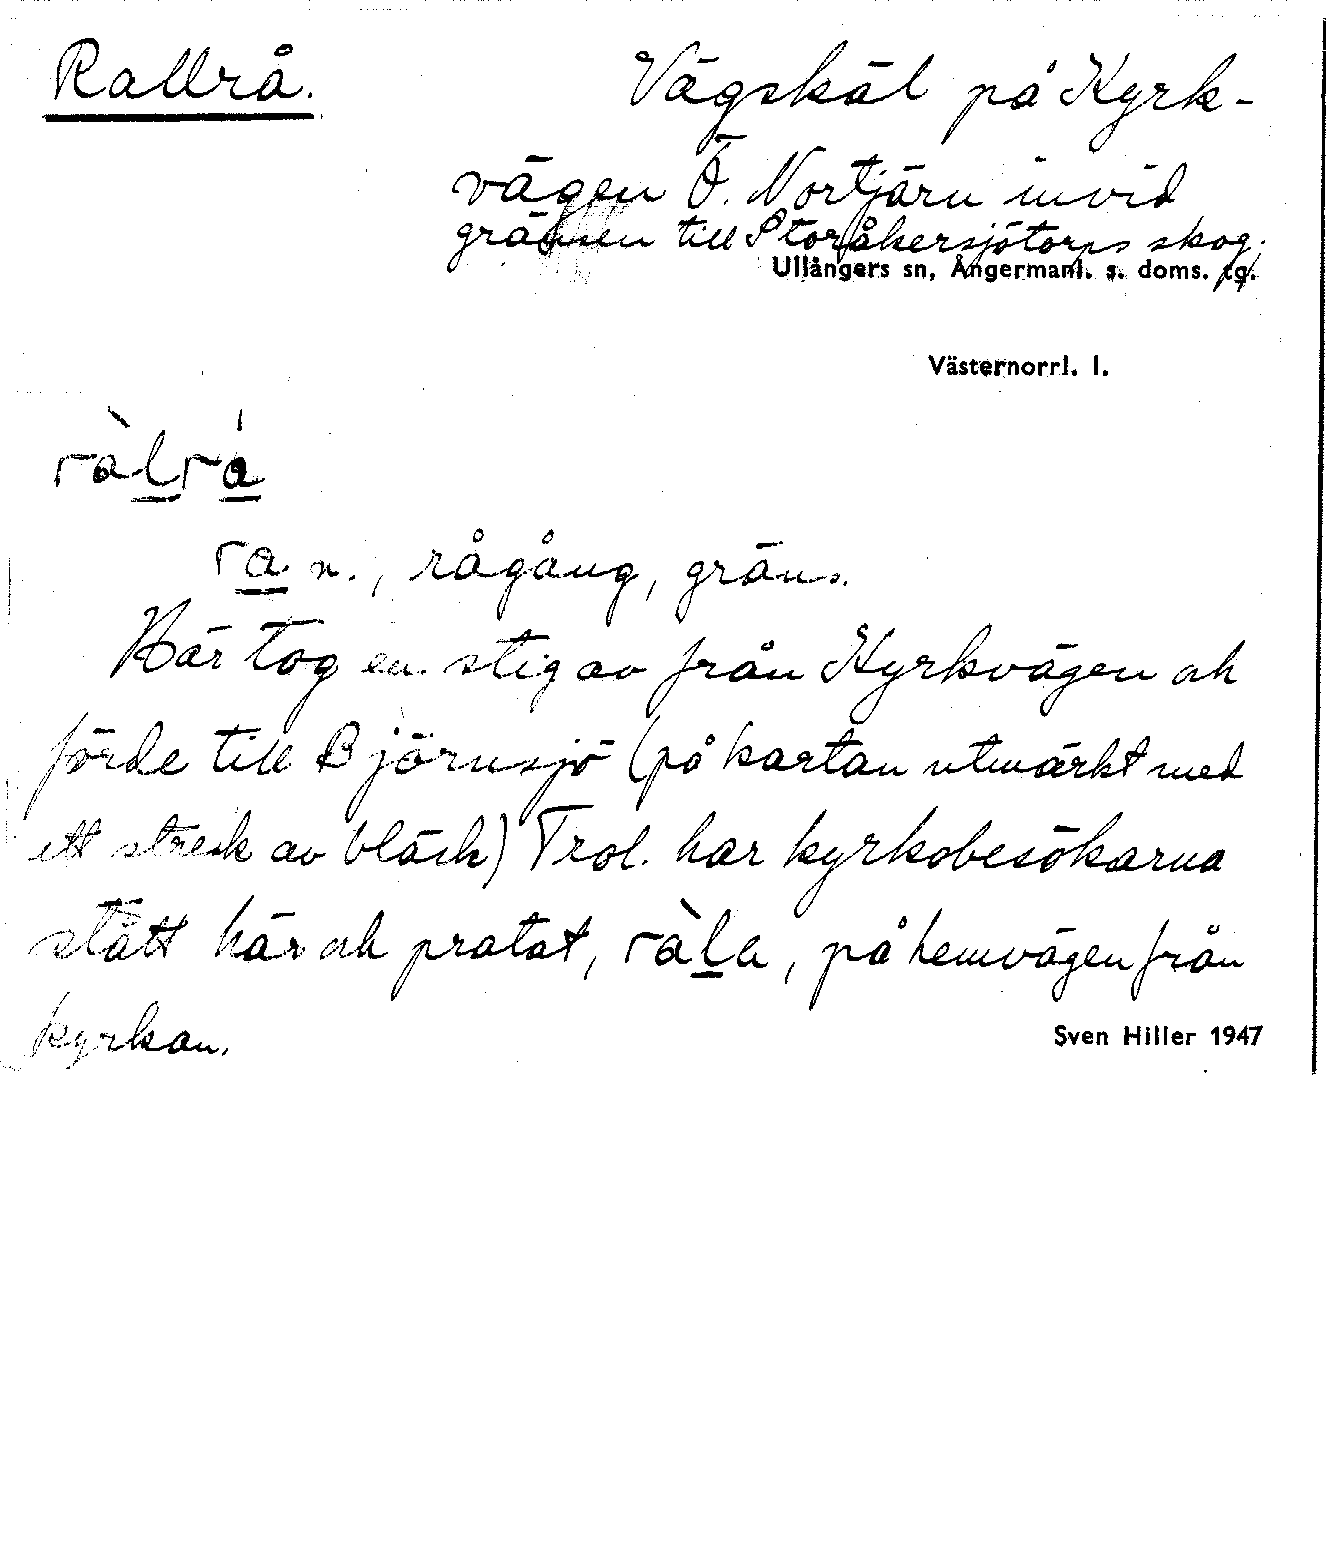 Rallrå.
Vägskäl på Kyrk-
vägen Ö. Nortjärn invid
gränsen till Storåkersjötorps skog.
Ullångers sn, Ångermanl. s. doms. tg.
Västernorrl. l.
ràlrá
ra n., rågång, gräns.
Här tog en stig av från Kyrkvägen och
förde till Björnsjö (på kartan utmärkt med
ett streck av bläck) Trol. har kyrkobesökarna
stått här och pratat, ràla, på hemvägen från
kyrkan.
Sven Hiller 1947